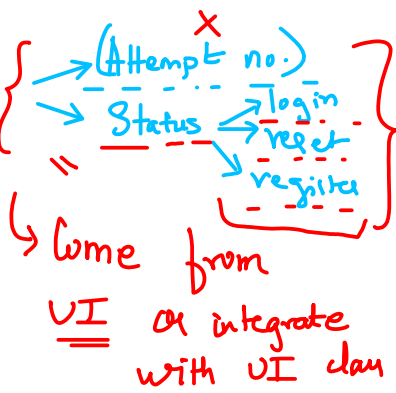 X
(Attempt no.)
Status
login
reset
register
Come from
UI or integrate
with UI